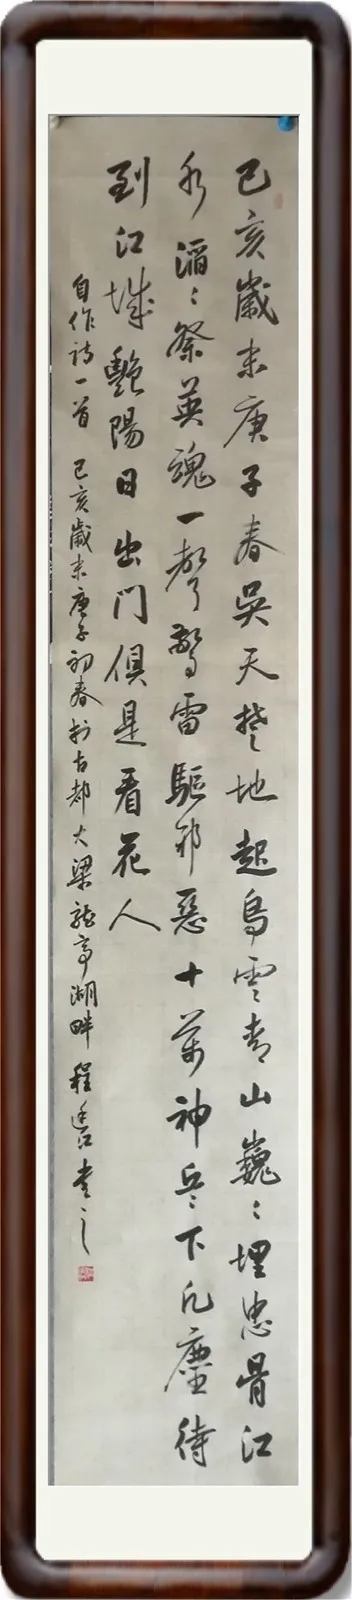 己亥歲末庚子春吳天楚地起烏雲青山巍〻埋忠骨江
水滔〻祭英魂一聲驚雷驅邪惡十萬神兵下凡塵待
到江城艷陽日出門俱是看花人
自作詩一首 己亥歲末庚子初春於古都大梁龍亭湖畔 程遂 書之